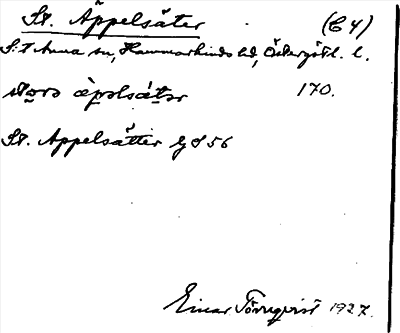 St. Äppelsäter (C4)
S:t Anna sn, Hammarkinds hd, Östergötl. l.
storə äpəlsátər 170.
St. Appelsätter GS 56
Einar Törnqvist 1927.